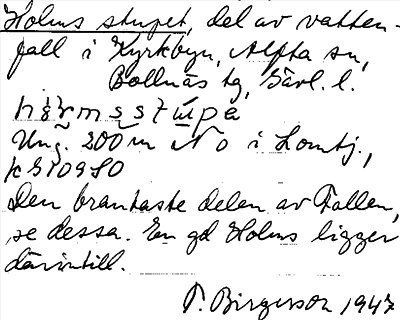 Holms stupet, del av vatten-
fall i Kyrkbyn, Alfta sn,
Bollnäs tg, Gävl. l.
Ung. 200 m N o i Lomtj.,
Den brantaste delen av Fallen,
se dessa. En gd Holms ligger
därintill.
P. Birgerson 1947